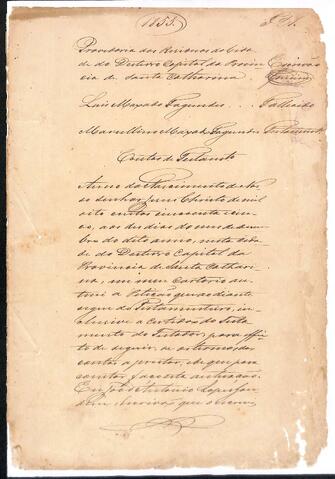 1855.
Provedoria dos Residuos da Cida
de do Desterro Capital da Provin
cia de Santa Catharina
Luis Maxado Fagundes . . . Fallecido
Marcellino Maxado Fagundes Testament
Contas de Testamto
Anno do Nascimento de Nos
so Senhor Jesus Christo de mil
oito centos cincoenta e cin
co, aos dez dias do mez de
bro do dito anno, nesta cida
de do Desterro Capital da
Provincia de Santa Cathari
na, em meu cartorio au
tuei a Petição que ao diante
segue do Testamenteiro, in
clusive a Certidão do Testa
mento do Testador, para effei
to de seguir os termos, das
contas a prestar, de que para
constar fiz esta autuação.
Eu João Antonio Lopes Gon
dim, escrivão que o escrevi